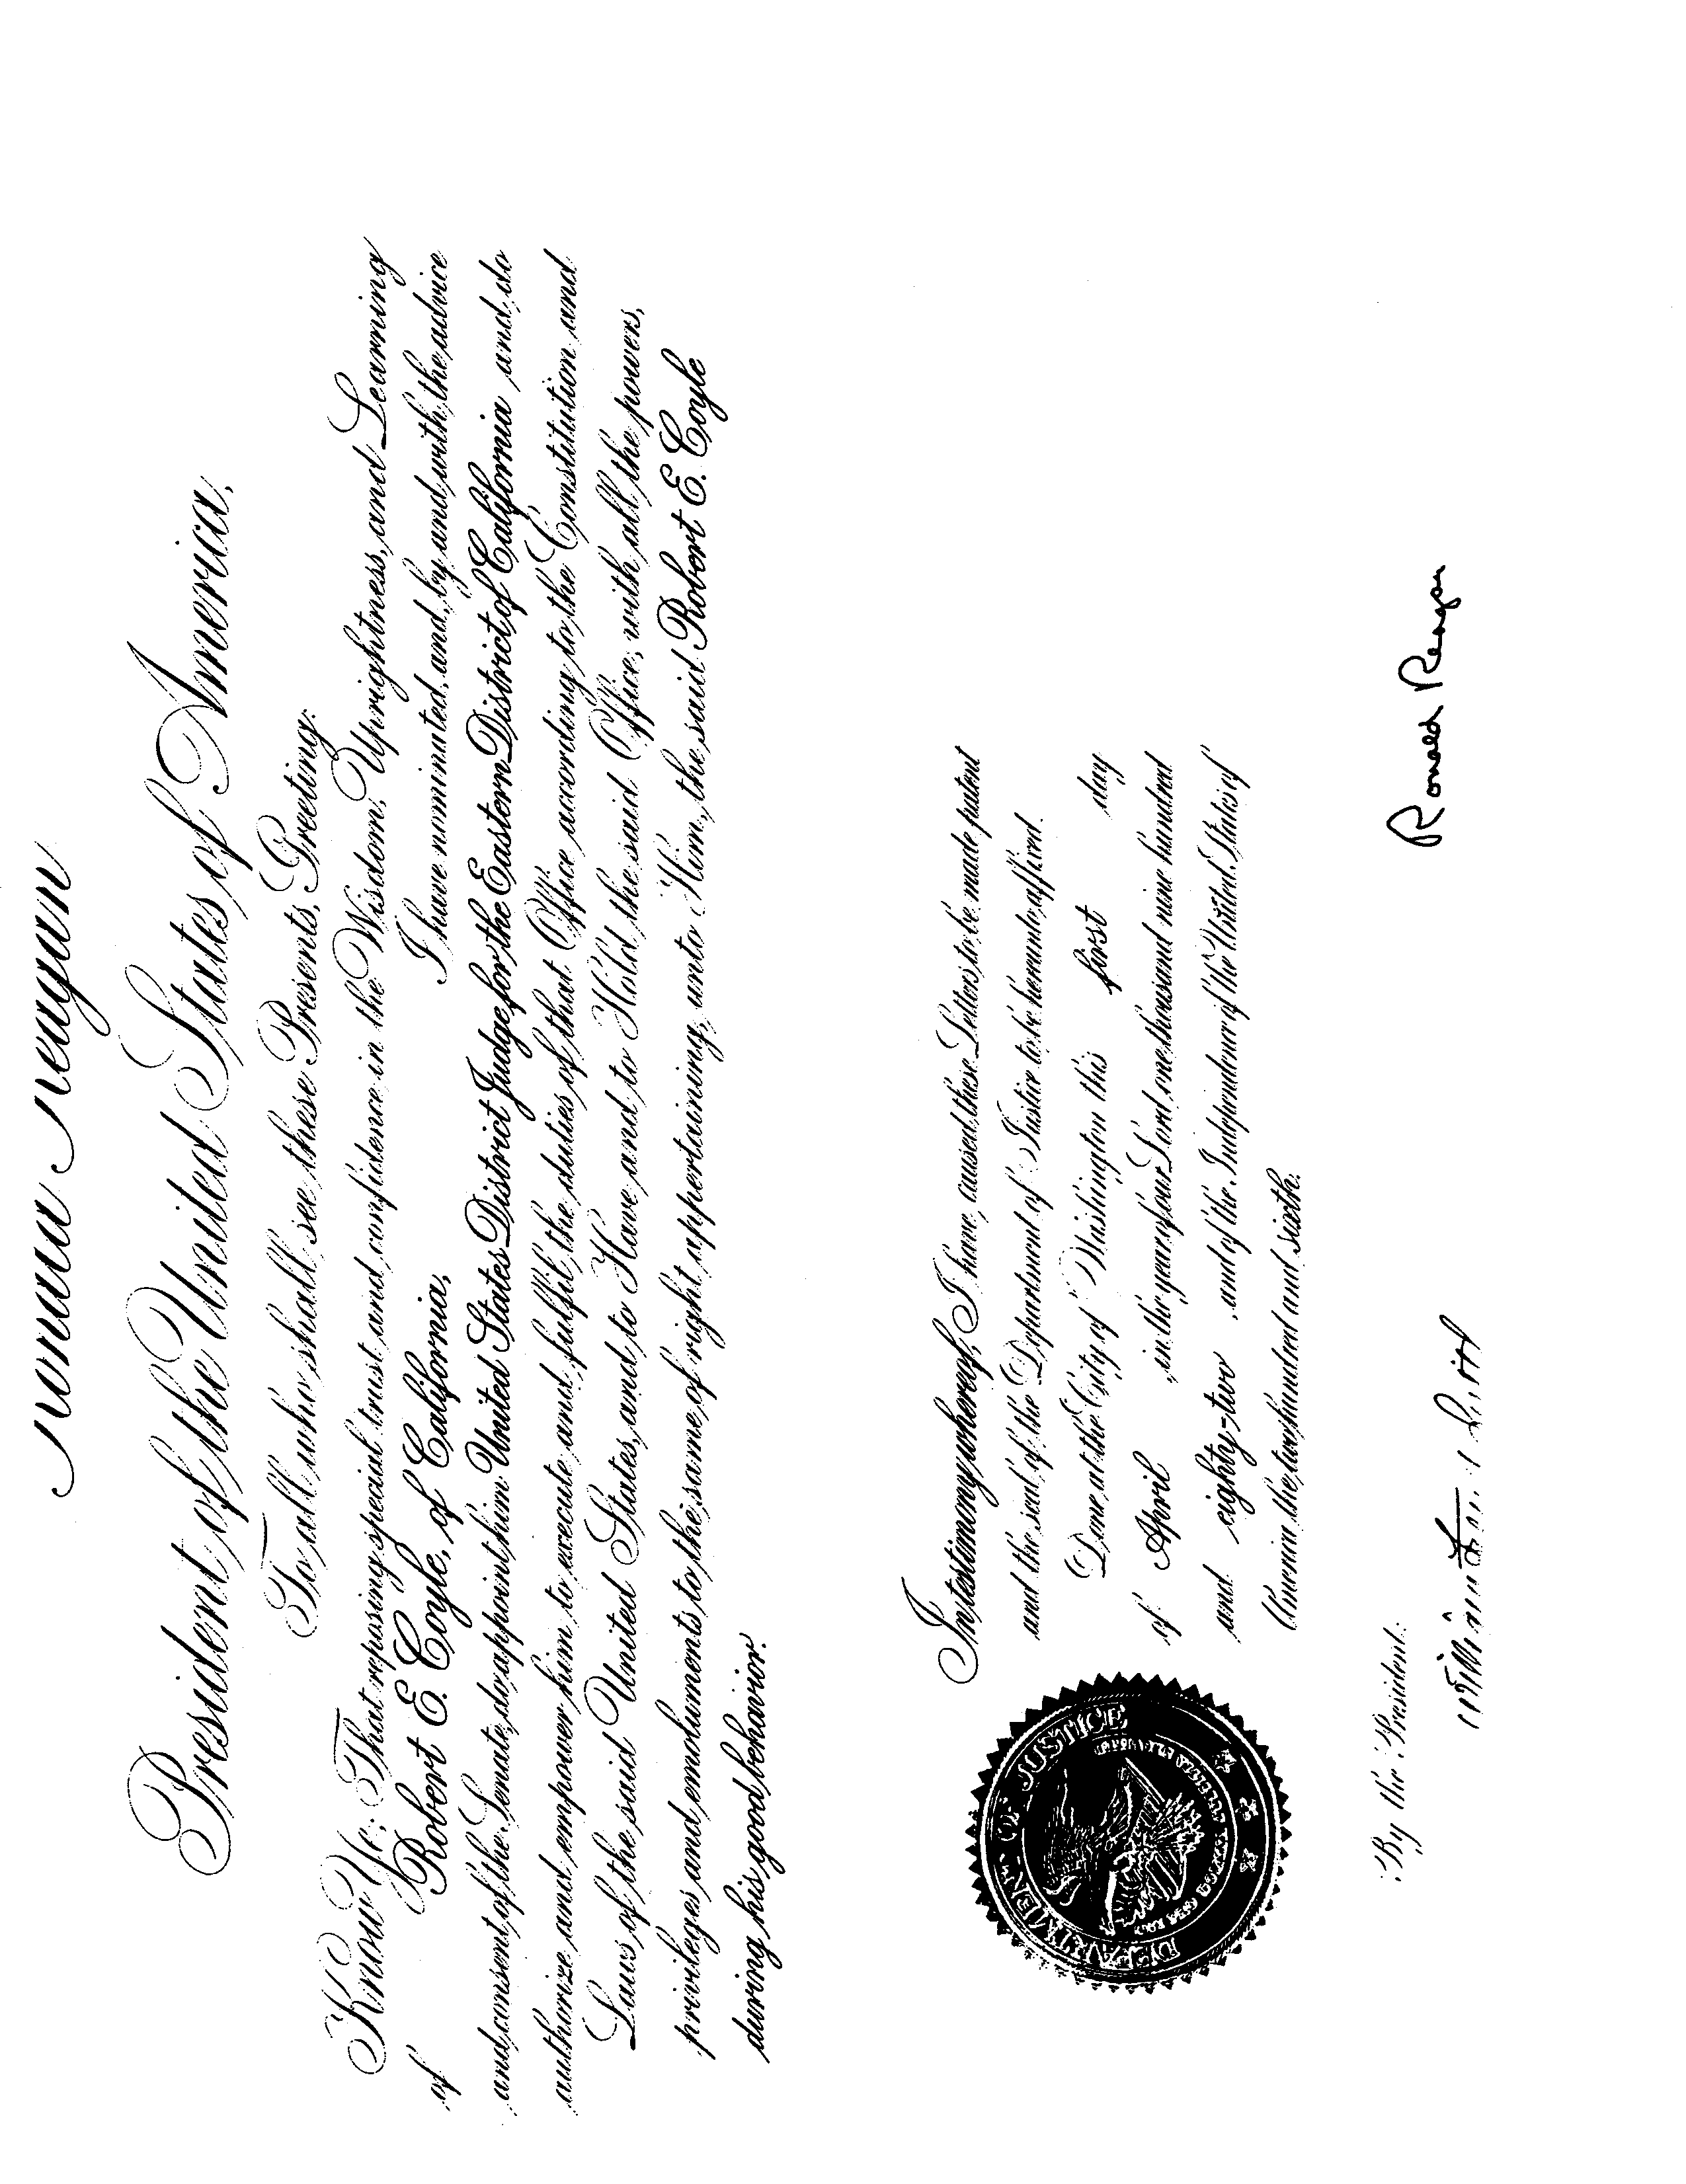 Ronald Reagan
President of the United States of America,
To all who shall see these Presents, Greeting:
Know Ye; That reposing special trust and confidence in the Wisdom, Uprightness, and Learning
of Robert E. Coyle, of California, I have nominated, and, by and with the advice
and consent of the Senate, do appoint him United States District Judge for the Eastern District of California and do
authorize and empower him to execute and fulfil the duties of that Office according to the Constitution and
Laws of the said United States, and to Have and to Hold the said Office, with all the powers,
privileges and emoluments to the same of right appertaining, unto Him, the said Robert E. Coyle
during his good behavior.
In testimony whereof, I have caused these Letters to be made patent
and the seal of the Department of Justice to be hereunto affixed.
Done at the City of Washington this first day
of April in the year of our Lord one thousand nine hundred
and eighty-two and of the Independence of the United States of
America the two hundred and sixth.
DEPARTMENT OF JUSTICE
Ronald Reagan
By the President: